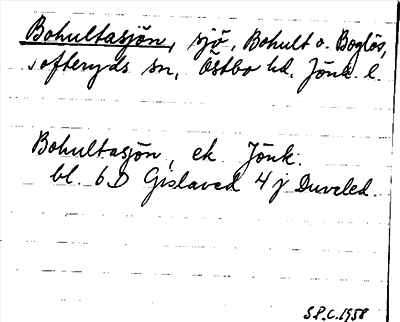 Bohultasjön, sjö, Bohult o. Boglös,
Tofteryds sn, Östbo hd. Jönk. l.
Bohultasjön, ek Jönk.
bl. 6D Gislaved 4 j Duveled.
S.P.C. 1958